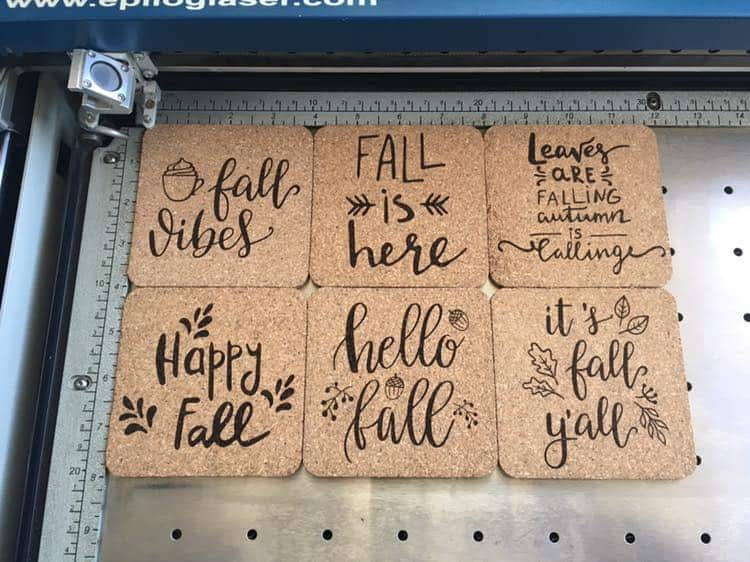 www.epiloglaser.com
fall
vibes
FALL
is
here
Leaves
ARE
FALLING
autumn
IS
Calling
Happy
Fall
hello
fall
it's
fall
y'all